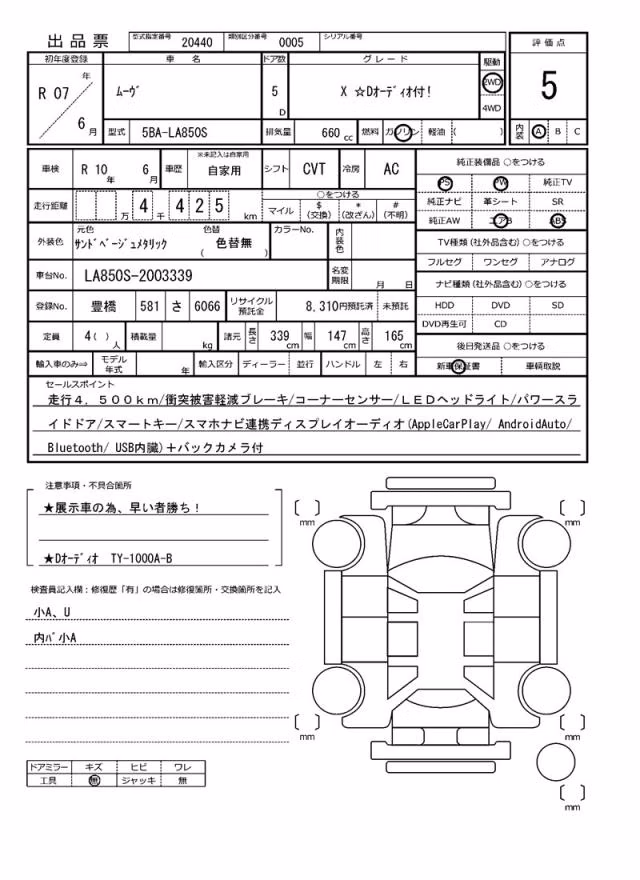 出品票 型式指定番号 20440 類別区分番号 0005 シリアル番号
初年度登録 車名 ドア数 グレード 駆動 評価点
R 07 年 6 月 ムーヴ 5 D X ☆Dオーディオ付! 2WD 4WD 5
型式 5BA-LA850S 排気量 660 cc 燃料 ガソリン 軽油 ( ) 内装 A B C
車検 R 10 年 6 月 車歴 ※未記入は自家用 自家用 シフト CVT 冷房 AC 純正装備品 ○をつける
PS PW 純正TV
走行距離 万 4 千 4 2 5 km ○をつける
マイル $(交換) *(改ざん) #(不明)
純正ナビ 革シート SR
純正AW エアB ABS
外装色 元色 サンドベージュメタリック 色替 ( 色替無 ) カラーNo. 内装色
TV種類 (社外品含む) ○をつける
フルセグ ワンセグ アナログ
車台No. LA850S-2003339 名変期限 月 日
ナビ種類 (社外品含む) ○をつける
登録No. 豊橋 581 さ 6066 リサイクル預託金 8,310円預託済 未預託
HDD DVD SD
DVD再生可 CD
定員 4( ) 人 積載量 kg 諸元 長さ 339 cm 幅 147 cm 高さ 165 cm
後日発送品 ○をつける
輸入車のみ⇒ モデル年式 年 輸入区分 ディーラー 並行 ハンドル 左 右
新車保証書 車輌取説
セールスポイント
走行4.500km/衝突被害軽減ブレーキ/コーナーセンサー/LEDヘッドライト/パワースラ
イドドア/スマートキー/スマホナビ連携ディスプレイオーディオ(AppleCarPlay/ AndroidAuto/
Bluetooth/ USB内臓)+バックカメラ付
注意事項・不具合箇所
★展示車の為、早い者勝ち!
★Dオーディオ TY-1000A-B
検査員記入欄:修復歴「有」の場合は修復箇所・交換箇所を記入
小A、U
内バ小A
ドアミラー キズ ヒビ ワレ
工具 無 ジャッキ 無
[ ] mm
[ ] mm
[ ] mm
[ ] mm
[ ] mm